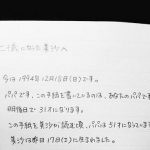 二十歳になった美沙へ
今日は1994年12月18日(日)です。
パパです。この手紙を書いているのは、あなたのパパで
明後日で31才になります。
この手紙を美沙が読む頃、パパは51才になっています
美沙は昨日17日(土)に生まれました。